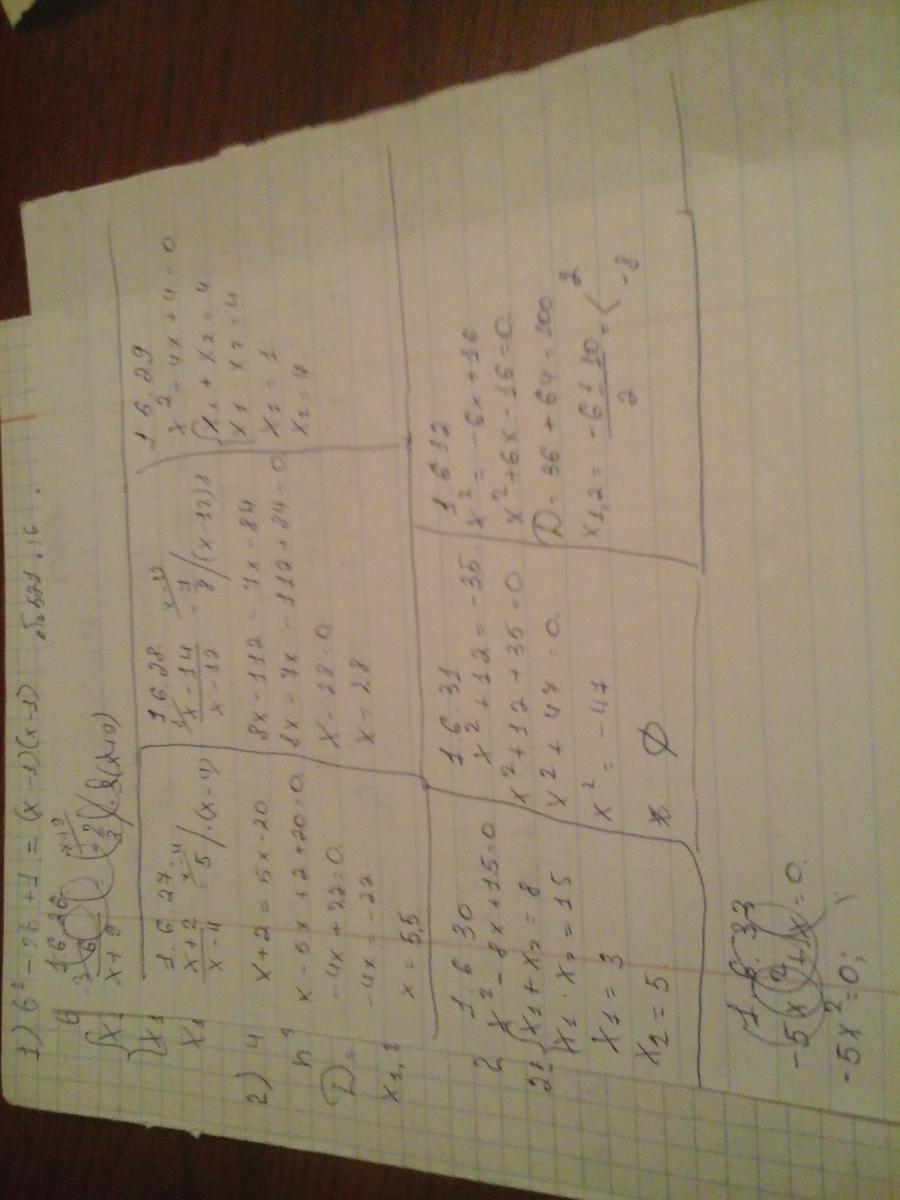 1) b² - 2b + 1 = (x-1)(x-1)
1.6.26
x+9
{x1
{x1
x1
2) 4
D =
x1,2
1.6.27
x+2
x-4
= 5 / ·(x-4)
x+2 = 5x-20
x-5x+2+20=0
-4x+22=0
-4x=-22
x=5,5
1.6.28
x-14
x-12
= 7
8 /(x-12)8
8x-112=7x-84
8x-7x-112+84=0
x-28=0
x=28
1.6.29
x²-4x+4=0
{x1+x2=4
x1·x2=4
x1=1
x2=4
1.6.30
x²-8x+15=0
{x1+x2=8
x1·x2=15
x1=3
x2=5
1.6.31
x²+12=-35
x²+12+35=0
x²+47=0
x²=-47
∅
1.6.32
x²=-6x+16
x²+6x-16=0
D=36+64=100
x1,2= -6±10
2
= < 2
-8
1.6.33
-5x²=0;